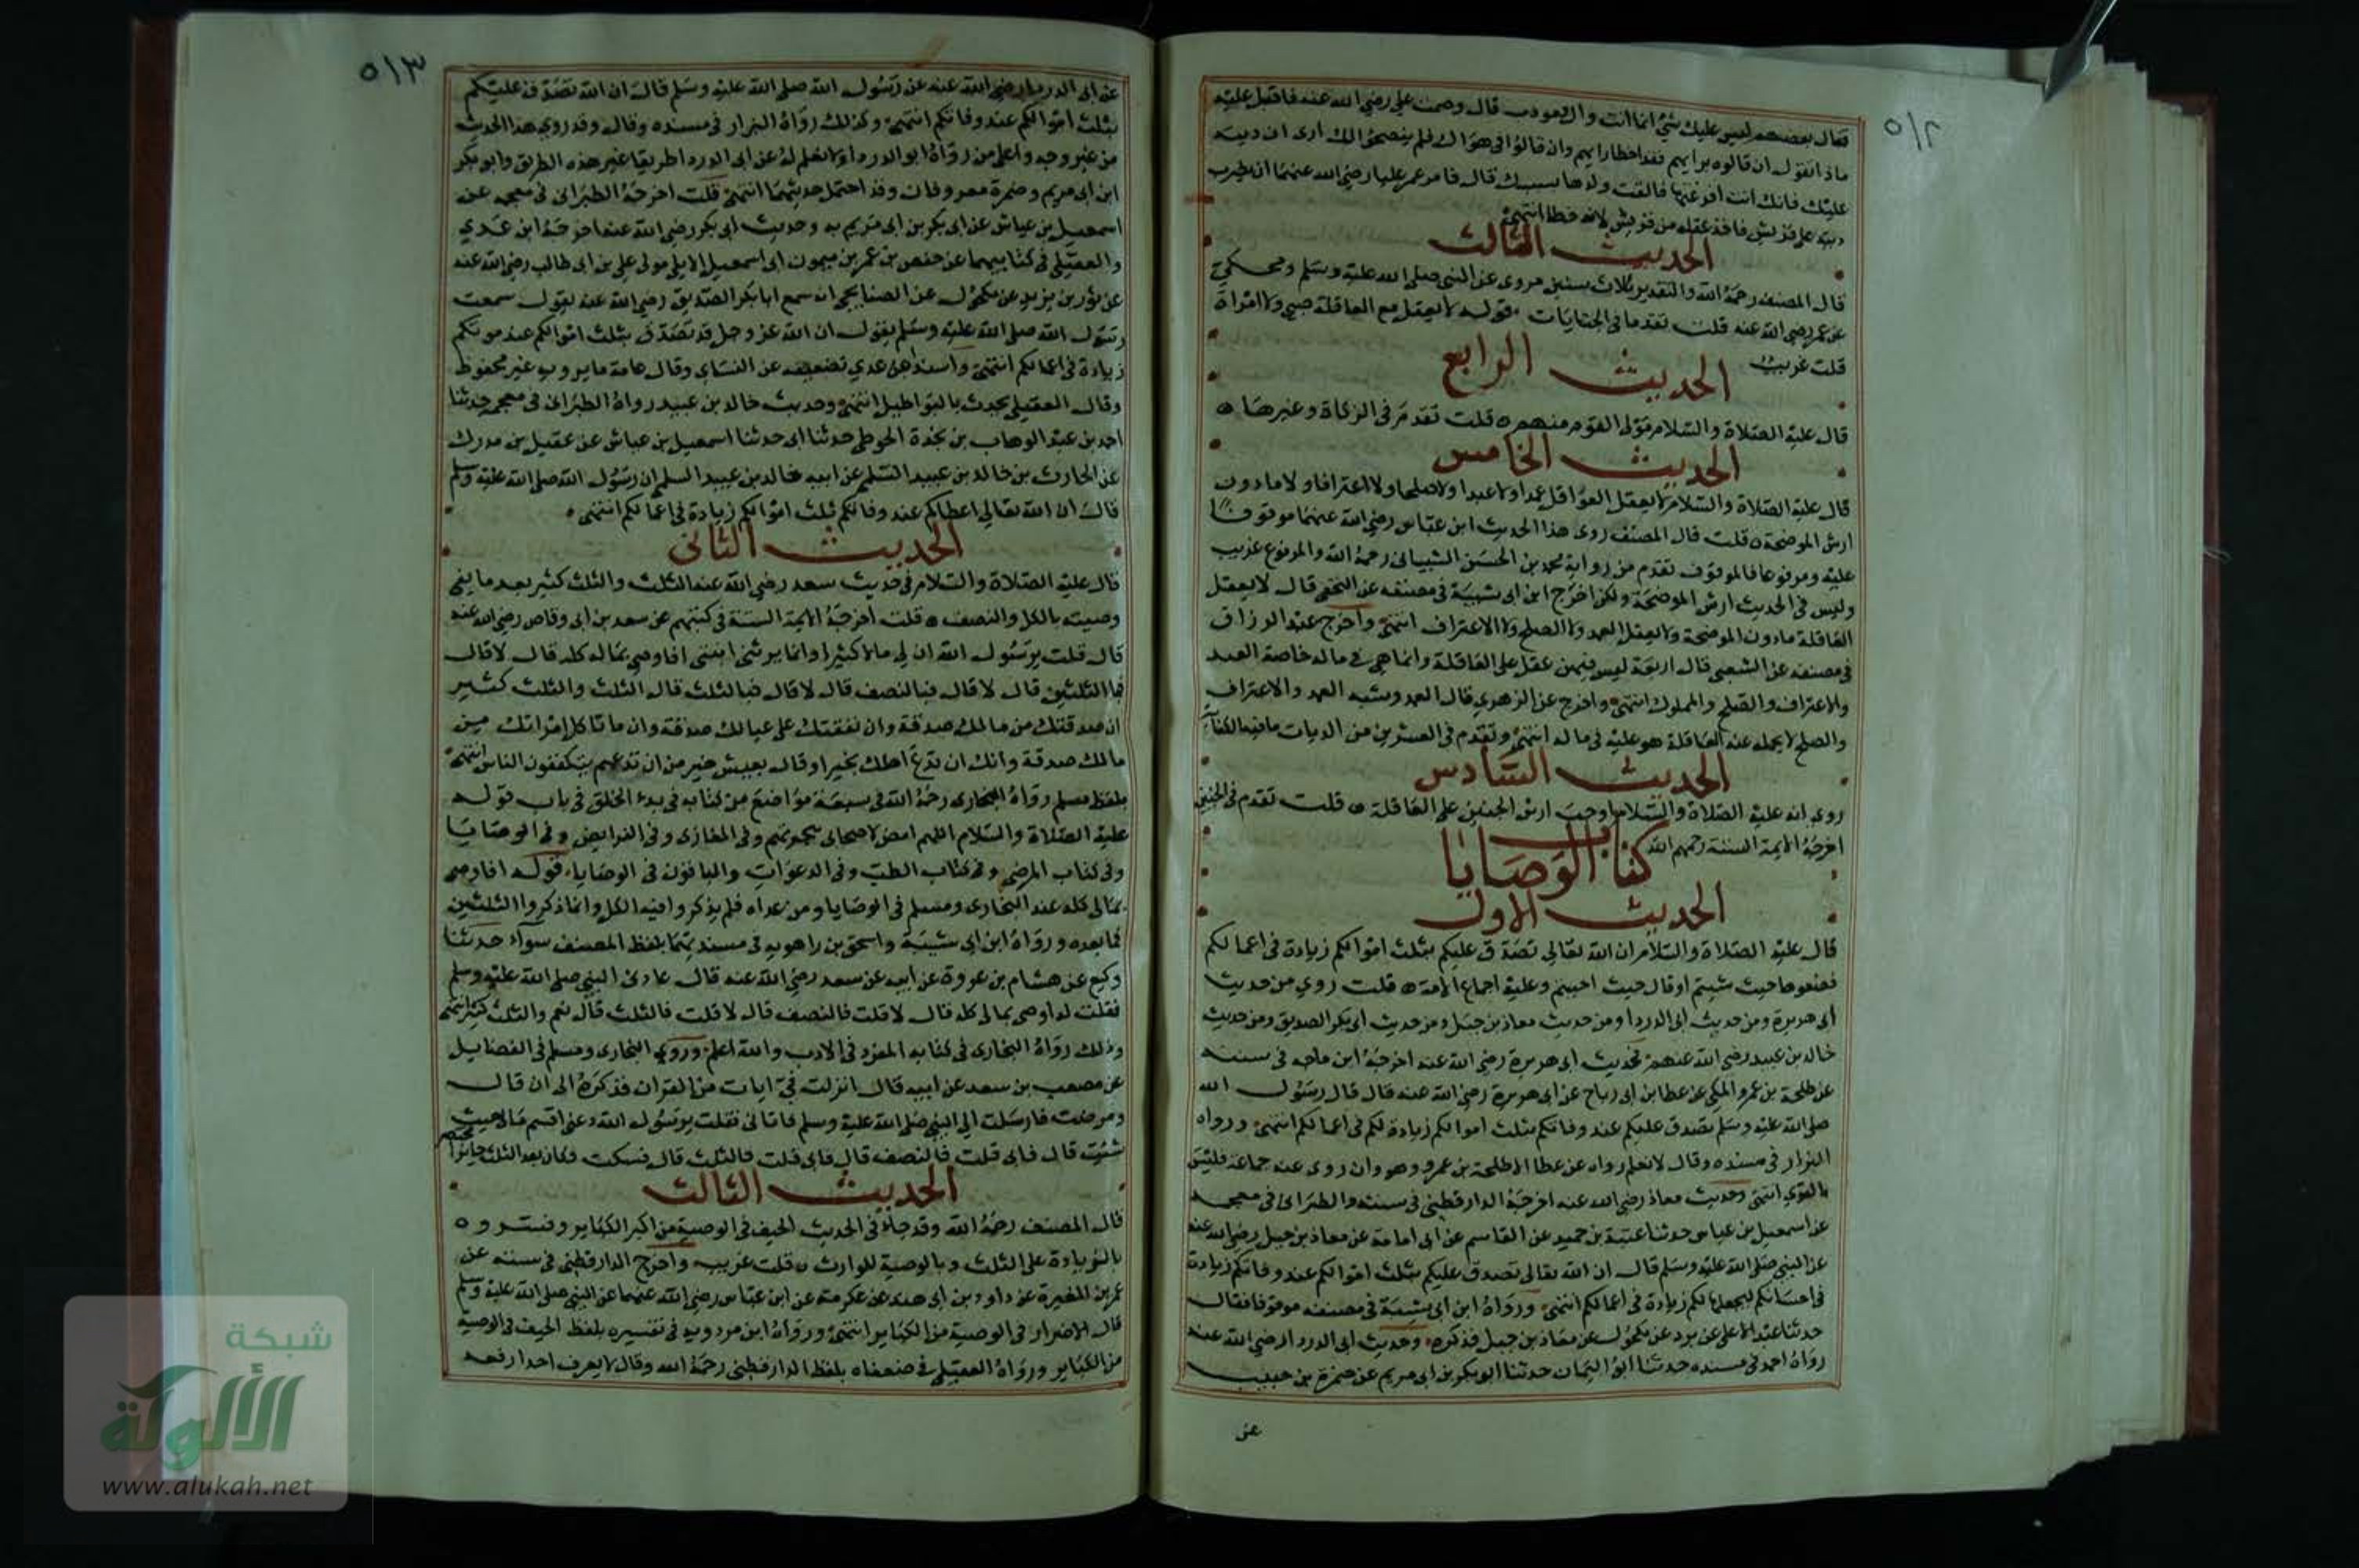 ٥١٢
فقال بعضهم ليس عليك شيء انما انت وال ومودب قال وصمت علي رضي الله عنه فاقبل عليه
ماذا تقول ان قالوه برايهم فقد اخطا رايهم وان قالوا في هواك فلم ينصحوا لك ارى ان ديته
عليك فانك انت افزعتها فالقت ولدها بسببك قال فامر عمر عليا رضي الله عنهما ان يضرب
ديته على قريش فاخذ عقله من قريش لانه خطا انتهى
الحديث الثالث
قال المصنف رحمه الله والتقدير بثلاث سنين مروي عن النبي صلى الله عليه وسلم ومحكي
عن عمر رضي الله عنه قلت تقدما في الجنايات قوله لا يعقل مع العاقلة صبي ولا امراة
قلت غريب
الحديث الرابع
قال عليه الصلاة والسلام مولى القوم منهم ه قلت تقدم في الزكاة وغيرها ه
الحديث الخامس
قال عليه الصلاة والسلام لا يعقل العواقل عمدا ولا عبدا ولا صلحا ولا اعترافا ولا ما دون
ارش الموضحة ه قلت قال المصنف روى هذا الحديث ابن عباس رضي الله عنهما موقوفا
عليه ومرفوعا فالموقوف تقدم من رواية محمد بن الحسن الشيباني رحمه الله والمرفوع غريب
وليس في الحديث ارش الموضحة ولكن اخرج ابن ابي شيبة في مصنفه عن النخعي قال لا يعقل
العاقلة ما دون الموضحة ولا يعقل العمد ولا الصلح ولا الاعتراف انتهى واخرج عبد الرزاق
في مصنفه عن الشعبي قال اربعة ليس فيهن عقل على العاقلة وانما هي في ماله خاصة العمد
والاعتراف والصلح والمملوك انتهى واخرج عن الزهري قال العمد وشبه العمد والاعتراف
والصلح لا يحمله عنه العاقلة هو عليه في ماله انتهى وتقدم في العشرين من الديات ما فيه الكفاية
الحديث السادس
روي انه عليه الصلاة والسلام اوجب ارش الجنين على العاقلة ه قلت تقدم في الجنين
اخرجه الايمة الستة رحمهم الله
كتاب الوصايا
الحديث الاول
قال عليه الصلاة والسلام ان الله تعالى تصدق عليكم بثلث اموالكم زيادة في اعمالكم
فضعوها حيث شيتم او قال حيث احببتم وعليه اجماع الامة ه قلت روي من حديث
ابي هريرة ومن حديث ابي الدردا ومن حديث معاذ بن جبل ومن حديث ابي بكر الصديق ومن حديث
خالد بن عبيد رضي الله عنهم فحديث ابي هريرة رضي الله عنه اخرجه ابن ماجه في سننه
عن طلحة بن عمرو المكي عن عطا بن ابي رباح عن ابي هريرة رضي الله عنه قال قال رسول الله
صلى الله عليه وسلم تصدق عليكم عند وفاتكم بثلث اموالكم زيادة لكم في اعمالكم انتهى ورواه
البزار في مسنده وقال لا نعلم رواه عن عطا الا طلحة بن عمرو وهو وان روى عنه جماعة فليس
بالقوي انتهى وحديث معاذ رضي الله عنه اخرجه الدارقطني في سننه والطبراني في معجمه
عن اسمعيل بن عياش حدثنا عتبة بن حميد عن القاسم عن ابي امامة عن معاذ بن جبل رضي الله عنه
عن النبي صلى الله عليه وسلم قال ان الله تعالى تصدق عليكم بثلث اموالكم عند وفاتكم زيادة
في احسانكم ليجعلها لكم زيادة في اعمالكم انتهى ورواه ابن ابي شيبة في مصنفه موقوفا فقال
حدثنا عبد الاعلى عن برد عن مكحول عن معاذ بن جبل فذكره وحديث ابي الدردا رضي الله عنه
رواه احمد في مسنده حدثنا ابو اليمان حدثنا ابو بكر بن ابي مريم عن ضمرة بن حبيب
عن
٥١٣
عن ابي الدردا رضي الله عنه عن رسول الله صلى الله عليه وسلم قال ان الله تصدق عليكم
بثلث اموالكم عند وفاتكم انتهى وكذلك رواه البزار في مسنده وقال وقد روي هذا الحديث
من غير وجه واعلى من رواه ابو الدردا ولا نعلم له عن ابي الدردا طريقا غير هذه الطريق وابو بكر
ابن ابي مريم وضمرة معروفان وقد احتمل حديثهما انتهى قلت اخرجه الطبراني في معجمه عن
اسمعيل بن عياش عن ابي بكر بن ابي مريم به وحديث ابي بكر رضي الله عنه اخرجه ابن عدي
والعقيلي في كتابيهما عن حفص بن عمر بن ميمون ابي اسمعيل الايلي مولى علي بن ابي طالب رضي الله عنه
عن ثور بن يزيد عن مكحول عن الصنابجي انه سمع ابا بكر الصديق رضي الله عنه يقول سمعت
رسول الله صلى الله عليه وسلم يقول ان الله عز وجل قد تصدق بثلث اموالكم عند موتكم
زيادة في اعمالكم انتهى واسند ابن عدي تضعيفه عن النساي وقال عامة ما يرويه غير محفوظ
وقال العقيلي يحدث بالبواطيل انتهى وحديث خالد بن عبيد رواه الطبراني في معجمه حدثنا
احمد بن عبد الوهاب بن نجدة الحوطي حدثنا ابي حدثنا اسمعيل بن عياش عن عقيل بن مدرك
عن الحارث بن خالد بن عبيد السلم عن ابيه خالد بن عبيد السلم ان رسول الله صلى الله عليه وسلم
قال ان الله تعالى اعطاكم عند وفاتكم ثلث اموالكم زيادة في اعمالكم انتهى
الحديث الثاني
قال عليه الصلاة والسلام في حديث سعد رضي الله عنه الثلث والثلث كثير بعد ما نفى
وصيته بالكل والنصف ه قلت اخرجه الايمة الستة في كتبهم عن سعد بن ابي وقاص رضي الله عنه
قال قلت يرسول الله ان لي مالا كثيرا وانما يرثني ابنتي افاوصي بمالي كله قال لا قال
فبا الثلثين قال لا قال فبالنصف قال لا قال فبالثلث قال الثلث والثلث كثير
ان صدقتك من مالك صدقة وان نفقتك على عيالك صدقة وان ما تاكل امراتك من
مالك صدقة وانك ان تدع اهلك بخير او قال بعيش خير من ان تدعهم يتكففون الناس انتهى
بلفظ مسلم رواه البخاري رحمه الله في سبعة مواضع من كتابه في بدء الخلق في باب قوله
عليه الصلاة والسلام اللهم امض لاصحابي هجرتهم وفي المغازي وفي الفرايض وفي الوصايا
وفي كتاب المرضى وفي كتاب الطب وفي الدعوات والباقون في الوصايا قوله افاوصي
بمالي كله عند البخاري ومسلم في الوصايا ومن عداه فلم يذكروا فيه الكل وانما ذكروا الثلثين
فما بعده ورواه ابن ابي شيبة واسحق بن راهويه في مسنديهما بلفظ المصنف سوآء حدثنا
وكيع عن هشام بن عروة عن ابيه عن سعد رضي الله عنه قال عادني النبي صلى الله عليه وسلم
فقلت له اوصي بمالي كله قال لا قلت فالنصف قال لا قلت فالثلث قال نعم والثلث كثير انتهى
وذلك رواه البخاري في كتابه المفرد في الادب والله اعلم وروي البخاري ومسلم في الفضايل
عن مصعب بن سعد عن ابيه قال انزلت في ايات من القران فذكره الى ان قال
ومرضت فارسلت الى النبي صلى الله عليه وسلم فاتاني فقلت يرسول الله دعني اقسم مالي حيث
شئت قال فابى قلت فالنصف قال فابى قلت فالثلث قال فسكت فكان بعد الثلث جايزا مختصر
الحديث الثالث
قال المصنف رحمه الله وقد جاء في الحديث الحيف في الوصية من اكبر الكباير وفسروه
بالزيادة على الثلث وبالوصية للوارث ه قلت غريب واخرج الدارقطني في سننه عن
عمر بن المغيرة عن داود بن ابي هند عن عكرمة عن ابن عباس رضي الله عنهما عن النبي صلى الله عليه وسلم
قال الاضرار في الوصية من الكباير انتهى ورواه ابن مردويه في تفسيره بلفظ الحيف في الوصية
من الكباير ورواه العقيلي في ضعفاه بلفظ الدارقطني رحمه الله وقال لا يعرف احدا رفعه
شبكة
الألوكة
www.alukah.net